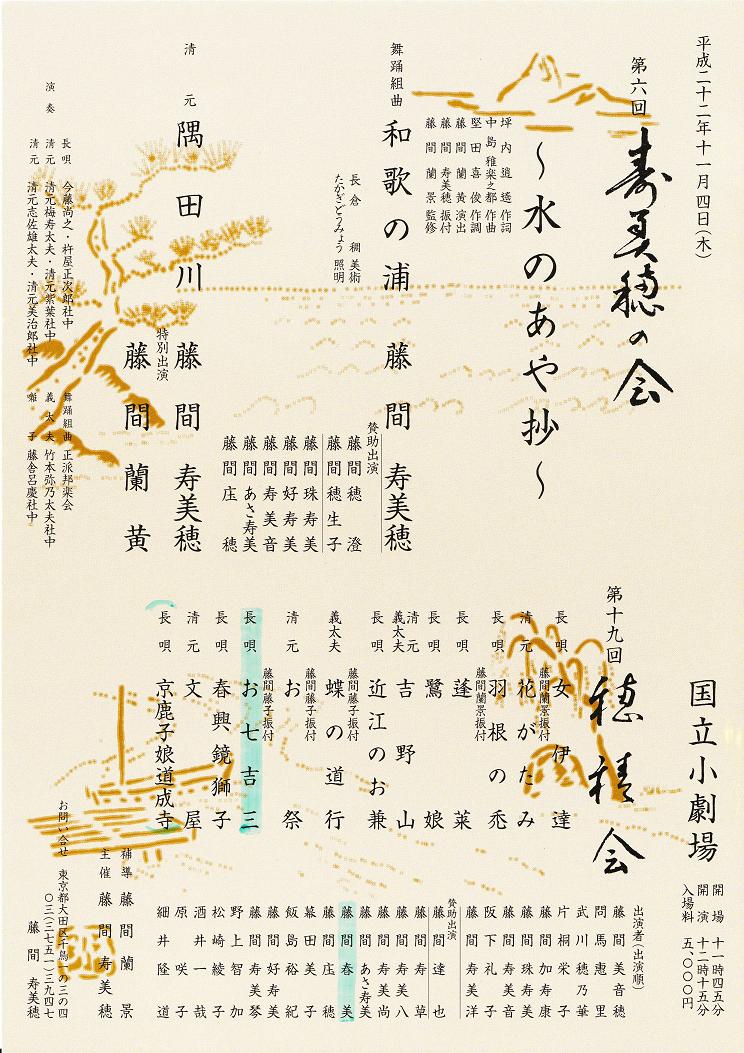 平成二十二年十一月四日（木）
第六回
寿美穂の会
～水のあや抄～
坪内逍遥 作詞
中島雅楽之都 作曲
堅田喜俊 作調
藤間蘭黄 演出
藤間寿美穂 振付
藤間蘭景 監修
舞踊組曲 和歌の浦 藤間寿美穂
長倉稠 美術
たかぎどうみょう 照明
賛助出演
藤間穂澄
藤間穂生子
藤間珠寿美
藤間好寿美
藤間寿美音
藤間あさ寿美
藤間庄穂
清元 隅田川 藤間寿美穂
特別出演
藤間蘭黄
演奏
長唄 今藤尚之・杵屋正次郎社中
清元 清元梅寿太夫・清元紫葉社中
清元 清元志佐雄太夫・清元美治郎社中
舞踊組曲 正派邦楽会
義太夫 竹本弥乃太夫社中
囃子 藤舎呂慶社中
国立小劇場
開場 十一時四五分
開演 十二時十五分
入場料 五、〇〇〇円
第十九回
穂積会
長唄 女伊達
藤間蘭景振付
清元 花がたみ
長唄 羽根の禿
藤間蘭景振付
長唄 蓬莱
長唄 鷺娘
清元 義太夫 吉野山
長唄 近江のお兼
藤間藤子振付
義太夫 蝶の道行
藤間藤子振付
清元 お祭
藤間藤子振付
長唄 お七吉三
長唄 春興鏡獅子
清元 文屋
長唄 京鹿子娘道成寺
出演者（出演順）
藤間美音穂
問馬恵里
武川穂乃華
片桐栄子
藤間加寿康
藤間珠寿美
藤間寿美音
阪下礼子
藤間寿美洋
賛助出演
藤間達也
藤間寿草
藤間寿美八
藤間寿美尚
藤間あさ寿美
藤間春美
藤間庄穂
幕田美子
飯島裕紀
藤間好寿美
藤間寿美琴
野上智加
松崎綾子
酒井一哉
原咲子
細井隆道
補導 藤間蘭景
主催 藤間寿美穂
お問い合せ 東京都大田区千鳥一の三の四
〇三（三七五一）三九四七
藤間寿美穂